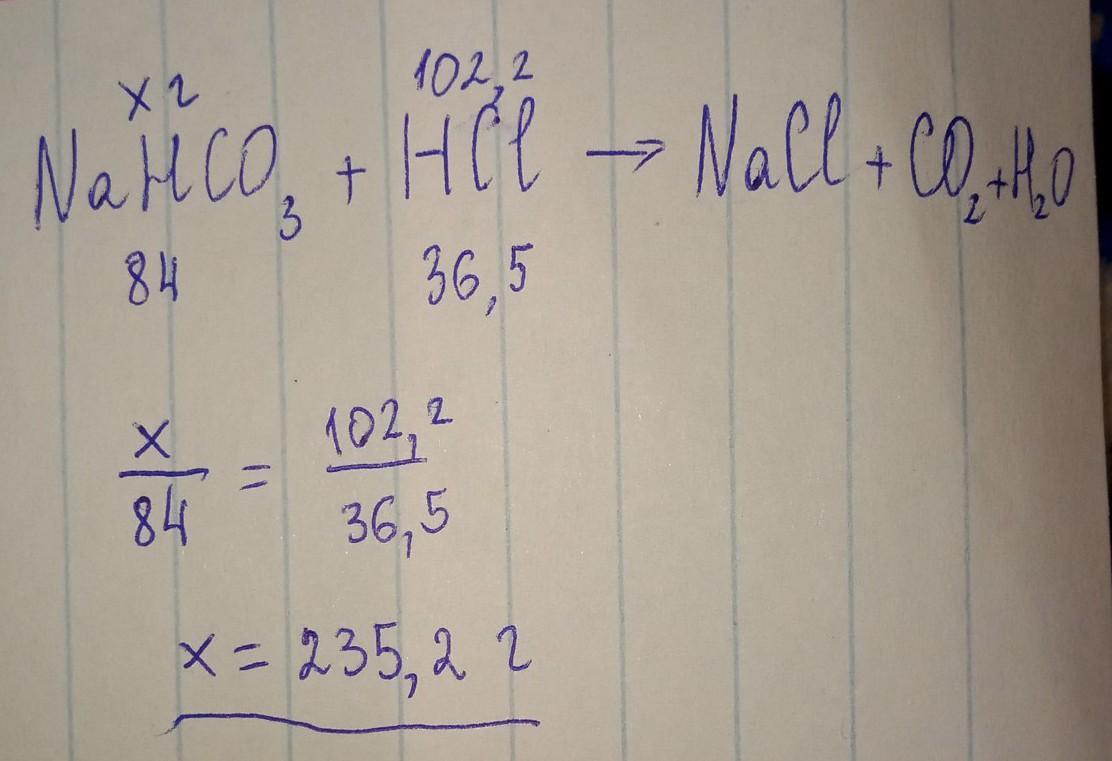 x г 102,2
NaHCO₃ + HCl → NaCl + CO₂ + H₂O
84 36,5
x/84 = 102,2/36,5
x = 235,2 г